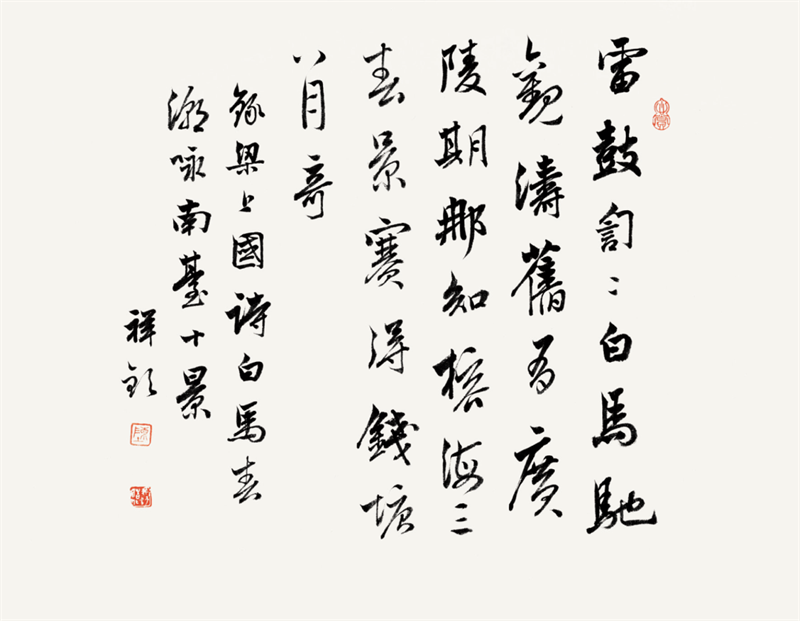 雷鼓訇〻白馬馳
觀濤舊有廣
陵期那知榕海三
春景賽得錢塘
八月奇
錄梁上國詩白馬春
潮咏南臺十景
祥欽